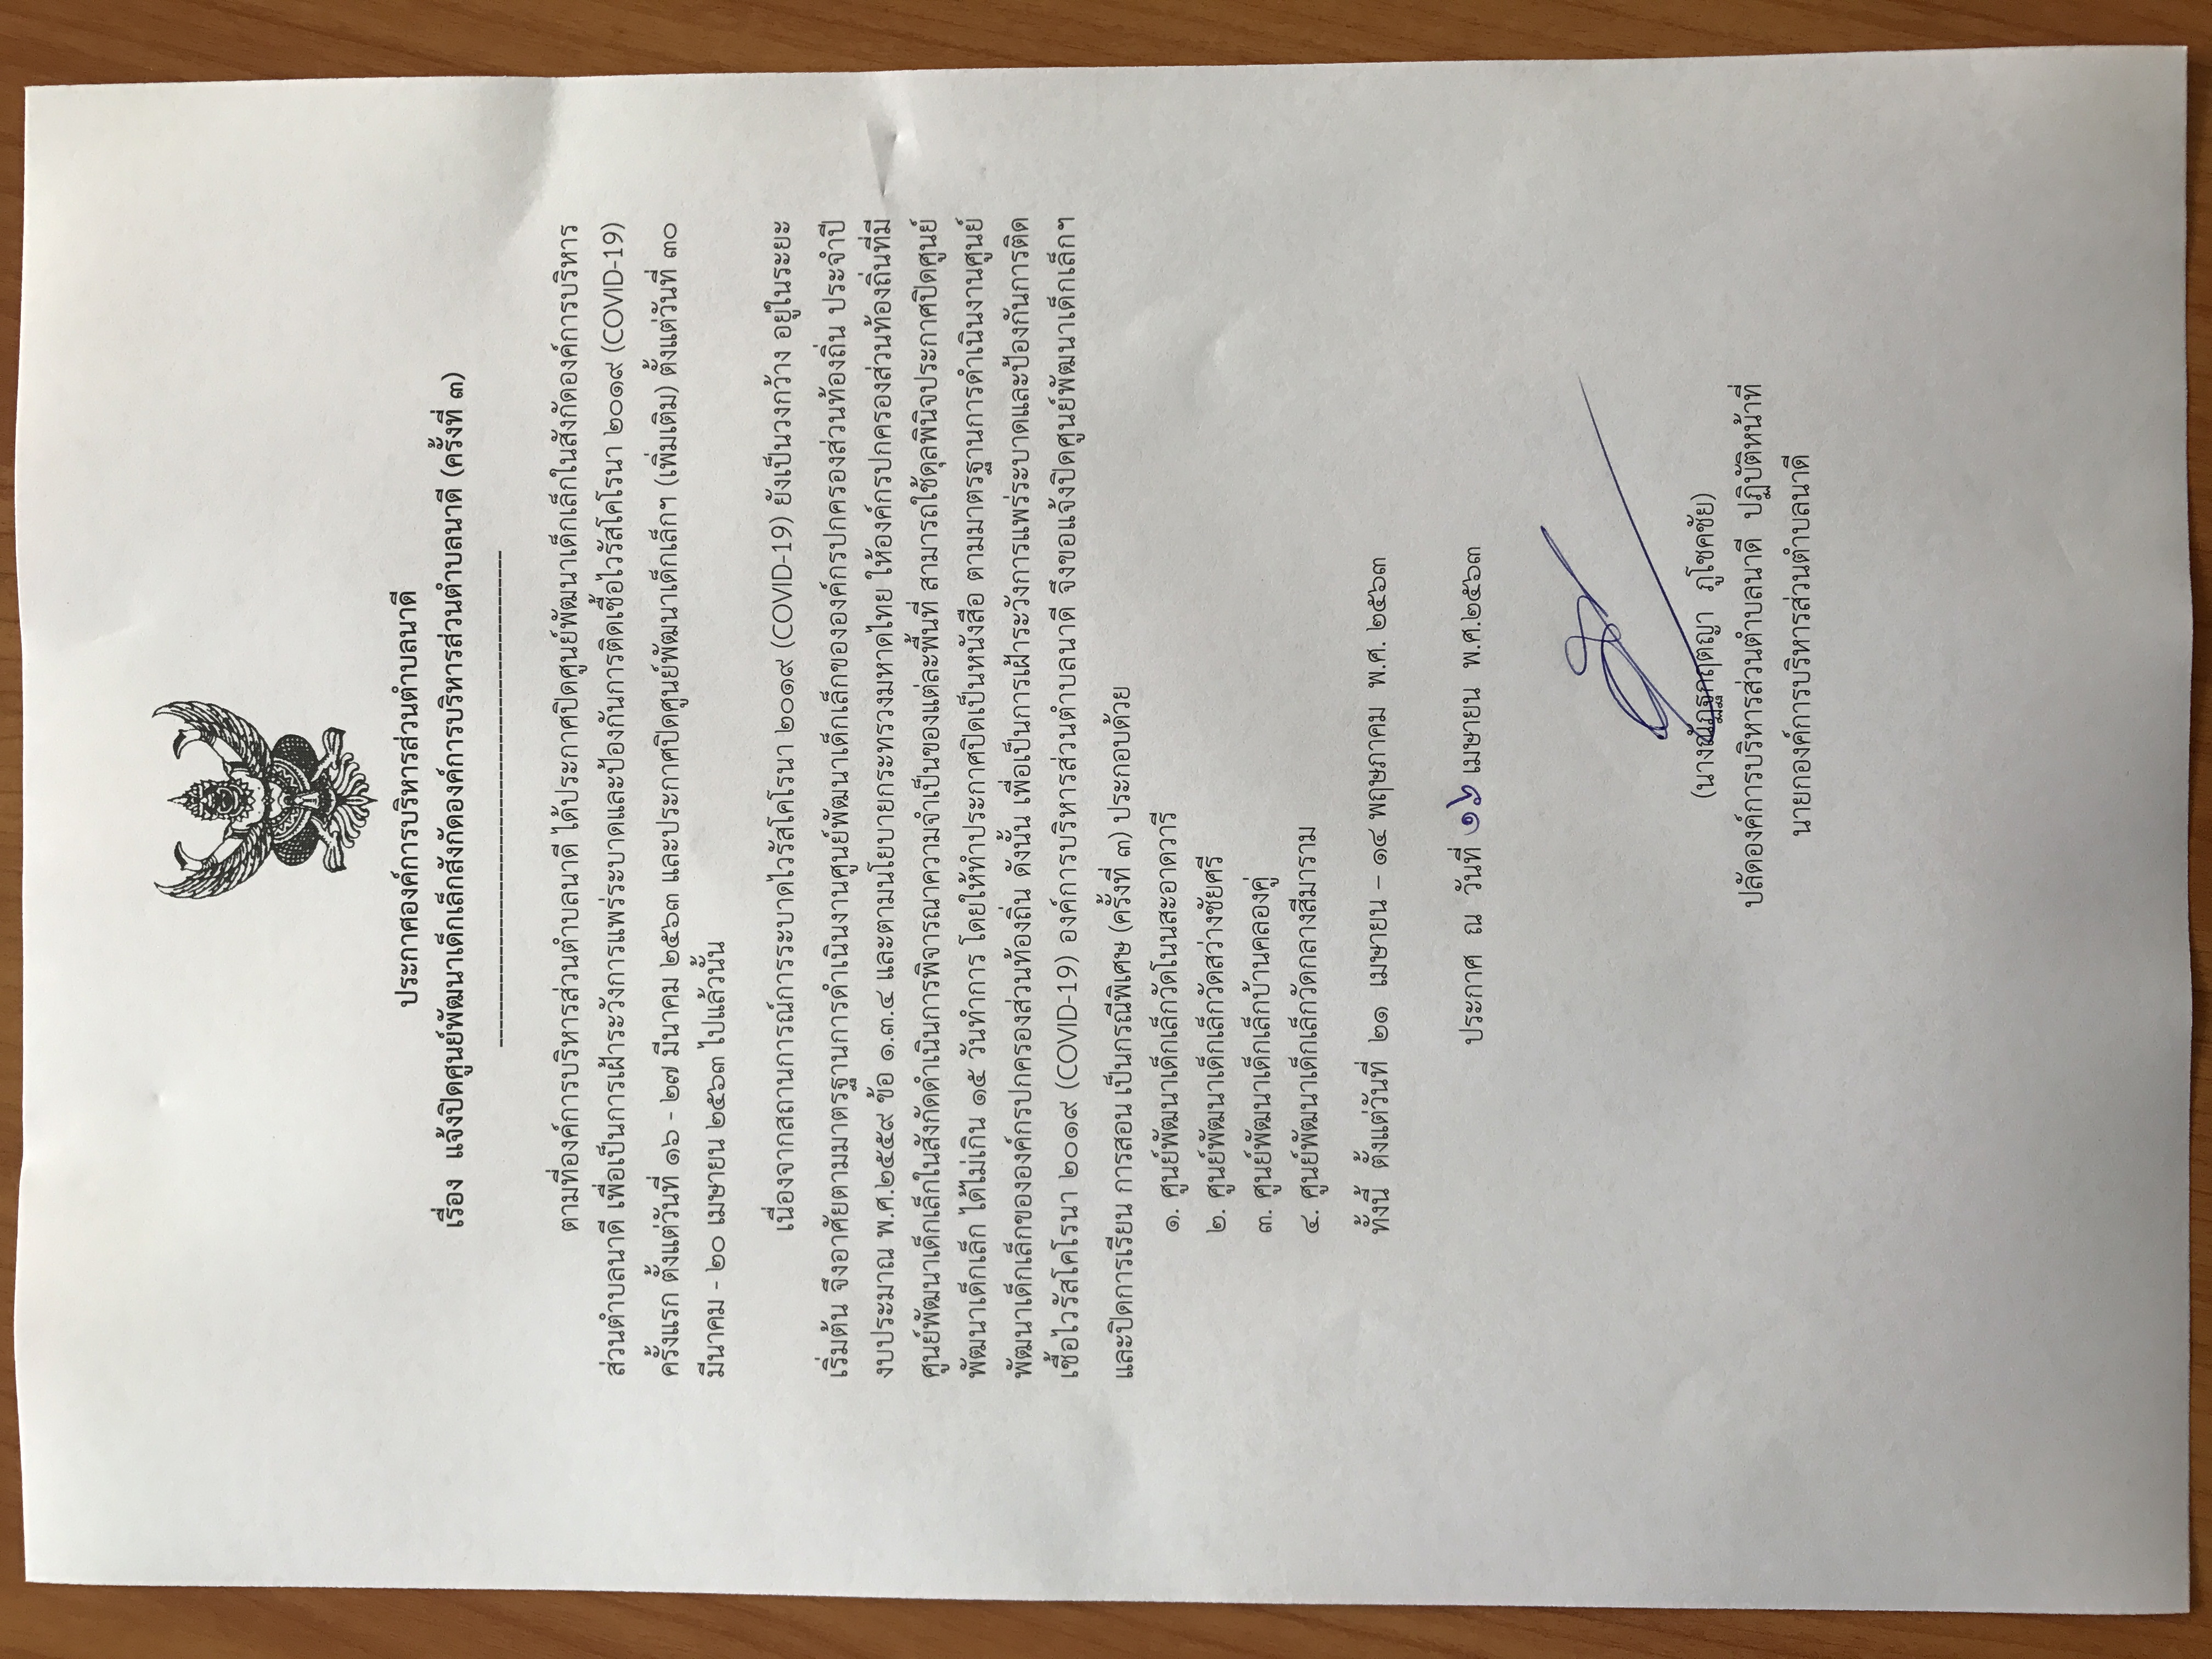 ประกาศองค์การบริหารส่วนตำบลนาดี
เรื่อง แจ้งปิดศูนย์พัฒนาเด็กเล็กสังกัดองค์การบริหารส่วนตำบลนาดี (ครั้งที่ ๓)
ตามที่องค์การบริหารส่วนตำบลนาดี ได้ประกาศปิดศูนย์พัฒนาเด็กเล็กในสังกัดองค์การบริหาร
ส่วนตำบลนาดี เพื่อเป็นการเฝ้าระวังการแพร่ระบาดและป้องกันการติดเชื้อไวรัสโคโรนา ๒๐๑๙ (COVID-19)
ครั้งแรก ตั้งแต่วันที่ ๑๖ - ๒๗ มีนาคม ๒๕๖๓ และประกาศปิดศูนย์พัฒนาเด็กเล็กฯ (เพิ่มเติม) ตั้งแต่วันที่ ๓๐
มีนาคม - ๒๐ เมษายน ๒๕๖๓ ไปแล้วนั้น
เนื่องจากสถานการณ์การระบาดไวรัสโคโรนา ๒๐๑๙ (COVID-19) ยังเป็นวงกว้าง อยู่ในระยะ
เริ่มต้น จึงอาศัยตามมาตรฐานการดำเนินงานศูนย์พัฒนาเด็กเล็กขององค์กรปกครองส่วนท้องถิ่น ประจำปี
งบประมาณ พ.ศ.๒๕๕๙ ข้อ ๑.๓.๔ และตามนโยบายกระทรวงมหาดไทย ให้องค์กรปกครองส่วนท้องถิ่นที่มี
ศูนย์พัฒนาเด็กเล็กในสังกัดดำเนินการพิจารณาความจำเป็นของแต่ละพื้นที่ สามารถใช้ดุลพินิจประกาศปิดศูนย์
พัฒนาเด็กเล็ก ได้ไม่เกิน ๑๕ วันทำการ โดยให้ทำประกาศปิดเป็นหนังสือ ตามมาตรฐานการดำเนินงานศูนย์
พัฒนาเด็กเล็กขององค์กรปกครองส่วนท้องถิ่น ดังนั้น เพื่อเป็นการเฝ้าระวังการแพร่ระบาดและป้องกันการติด
เชื้อไวรัสโคโรนา ๒๐๑๙ (COVID-19) องค์การบริหารส่วนตำบลนาดี จึงขอแจ้งปิดศูนย์พัฒนาเด็กเล็กฯ
และปิดการเรียน การสอน เป็นกรณีพิเศษ (ครั้งที่ ๓) ประกอบด้วย
๑. ศูนย์พัฒนาเด็กเล็กวัดโนนสะอาดวารี
๒. ศูนย์พัฒนาเด็กเล็กวัดสว่างชัยศรี
๓. ศูนย์พัฒนาเด็กเล็กบ้านคลองคู่
๔. ศูนย์พัฒนาเด็กเล็กวัดกลางสีมาราม
ทั้งนี้ ตั้งแต่วันที่ ๒๑ เมษายน – ๑๔ พฤษภาคม พ.ศ. ๒๕๖๓
ประกาศ ณ วันที่ ๑๖ เมษายน พ.ศ.๒๕๖๓
ภูโชคชัย)
ปลัดองค์การบริหารส่วนตำบลนาดี ปฏิบัติหน้าที่
นายกองค์การบริหารส่วนตำบลนาดี